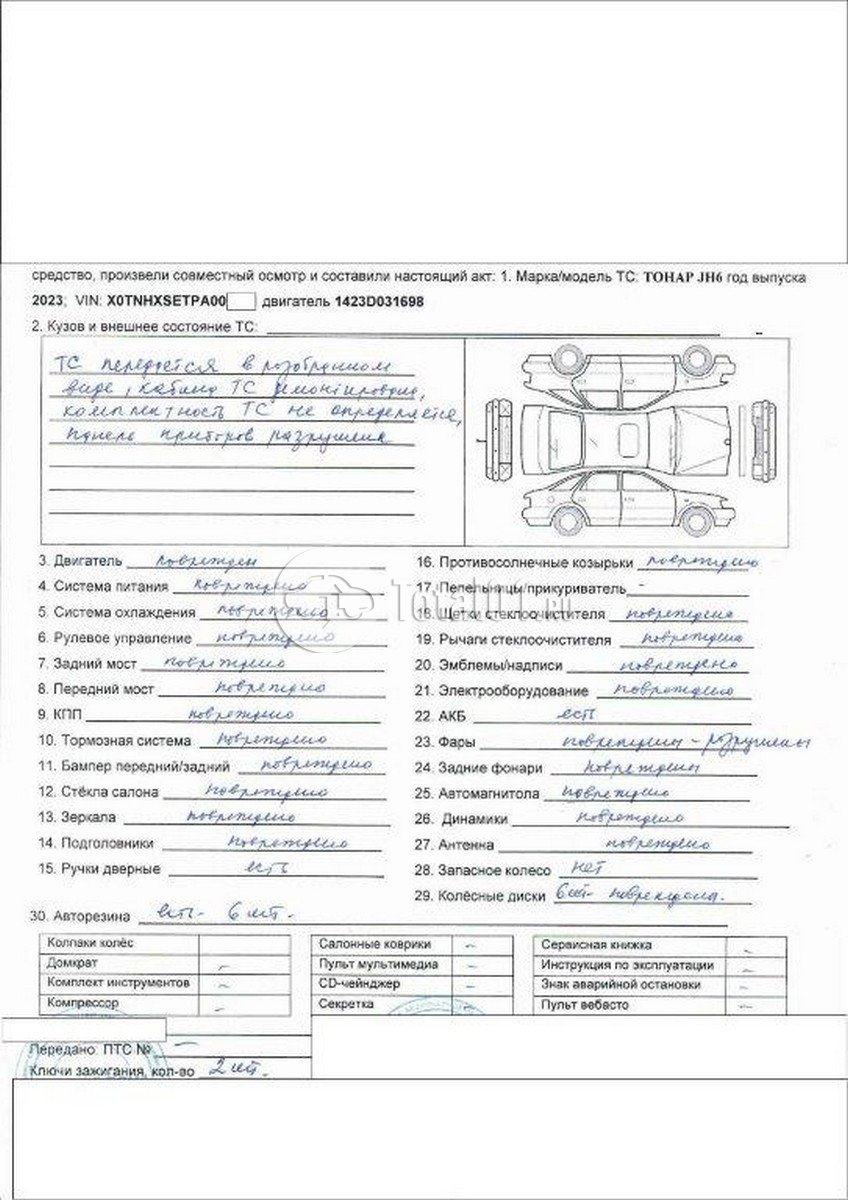 средство, произвели совместный осмотр и составили настоящий акт: 1. Марка/модель ТС: ТОНАР JH6 год выпуска
2023; VIN: X0TNHXSETPA00 двигатель 1423D031698
2. Кузов и внешнее состояние ТС:
ТС передается в разобранном
виде, кабина ТС демонтирована,
комплектность ТС не определяется,
панель приборов разрушена
3. Двигатель поврежден
4. Система питания повреждено
5. Система охлаждения повреждено
6. Рулевое управление повреждено
7. Задний мост повреждено
8. Передний мост повреждено
9. КПП повреждено
10. Тормозная система повреждено
11. Бампер передний/задний повреждено
12. Стёкла салона повреждено
13. Зеркала повреждено
14. Подголовники повреждено
15. Ручки дверные есть
16. Противосолнечные козырьки повреждено
17. Пепельницы/прикуриватель -
18. Щетки стеклоочистителя повреждено
19. Рычаги стеклоочистителя повреждено
20. Эмблемы/надписи повреждено
21. Электрооборудование повреждено
22. АКБ есть
23. Фары повреждены - разрушены
24. Задние фонари повреждены
25. Автомагнитола повреждено
26. Динамики повреждено
27. Антенна повреждено
28. Запасное колесо нет
29. Колёсные диски 6 шт - повреждены.
30. Авторезина есть - 6 шт.
Колпаки колёс
Домкрат -
Комплект инструментов -
Компрессор -
Салонные коврики -
Пульт мультимедиа -
CD-чейнджер -
Секретка -
Сервисная книжка -
Инструкция по эксплуатации -
Знак аварийной остановки -
Пульт вебасто -
Передано: ПТС № -
Ключи зажигания, кол-во 2 шт.
Total01.ru